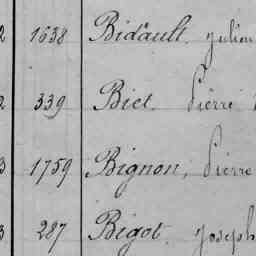 2 1638 Bidault. Julien
2 339 Biet. Pierre
3 1759 Bignon, Pierre
3 287 Bigot. Joseph